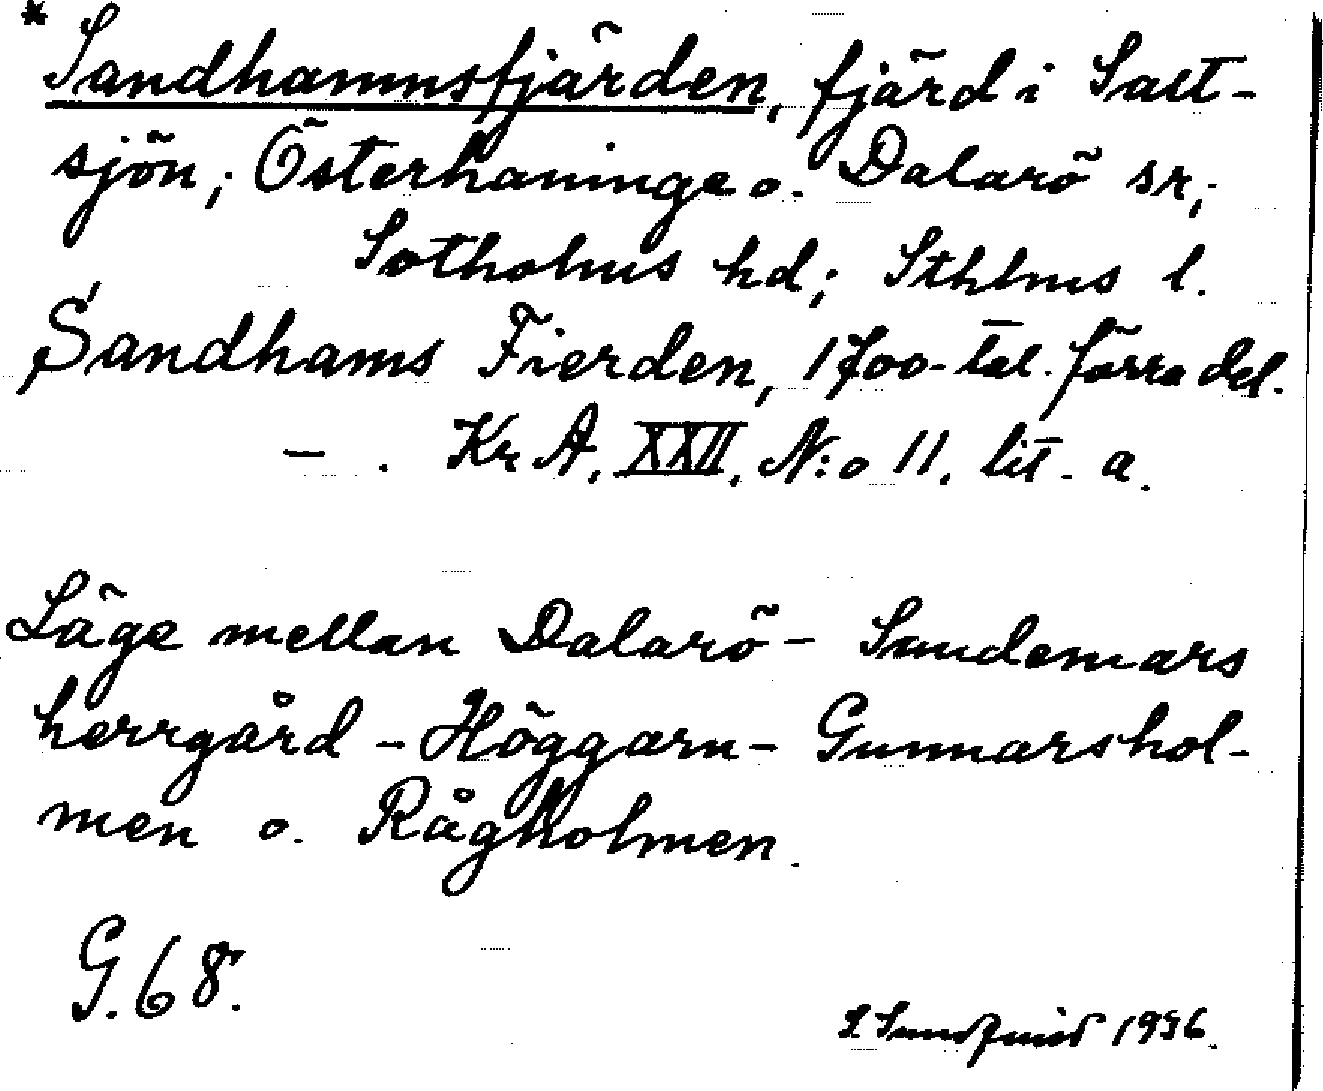 * Sandhamnsfjärden, fjärd i Salt-
sjön; Österhaninge o. Dalarö sr;
Sotholms hd; Sthlms l.
Sandhams Fierden, 1700-tal. förra del.
— . KrA, XXII, N:o 11. lit. a.
Läge mellan Dalarö - Sandemars
herrgård - Höggarn - Gunnarshol-
men o. Rågholmen.
G. 68.
Sundqvist 1936.